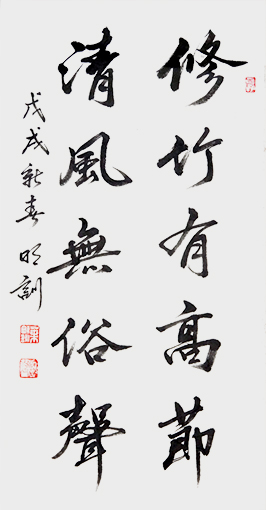 修竹有高節
清風無俗聲
戊戌新春 明訓